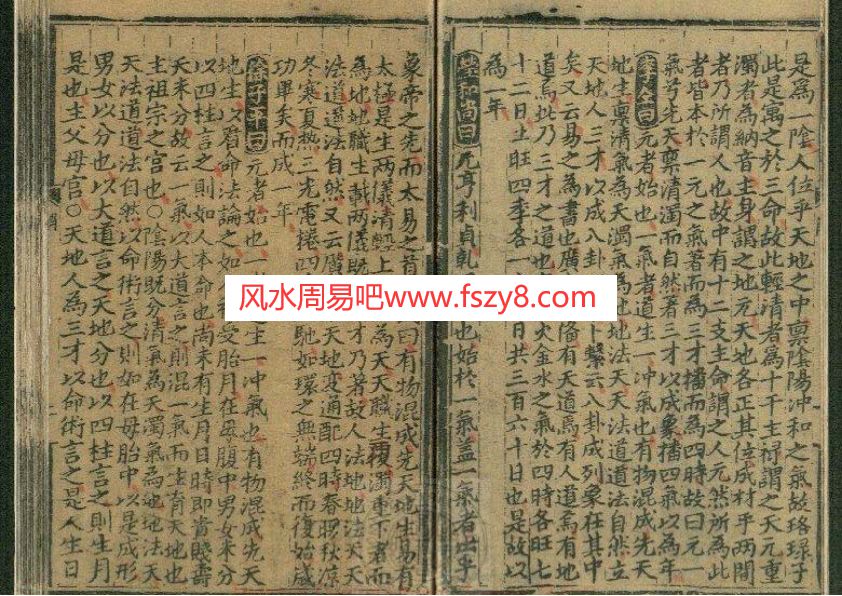 是為一陰人位乎天地之中禀陰陽冲和之氣故珞琭子
此是寓之於三命故此輕清者為十干主禄謂之天元重
濁者為納音主身謂之地元天地各正其位成材乎兩間
者乃所謂人也故中有十二支主命謂之人元然所為此
者皆本於一元之氣著而為三才播而為四時故曰元一
氣兮先天禀清濁而自然著三才以成象播四氣以為年
李仝曰元者始也一氣者道生一冲氣也有物混成先天
地生禀清氣為天濁氣為地地法天天法道道法自然立
天地人三才以成八卦卜繫云八卦成列象在其中
矣又云易之為書也廣備有天道焉有人道焉有地
道焉此乃三才之道也火金水之氣於四時各旺七
十二日土旺四季各一日共三百六十日也是故以
為一年
曇和尚曰元亨利貞乾也始於一氣盖一氣者出乎
象帝之先而太易之首曰有物混成先天地生易有
太極是生兩儀清輕上為天天職生覆濁重下者而
為地地職生載兩儀既才乃著故人法地地法天天
法道道法自然又云廣天地變通配四時春暖秋凉
冬寒夏熱三光電捲四馳如環之無端終而復始歲
功畢矣而成一年
徐子平曰元者始也生一冲氣也有物混成先天
地生以看命法論之如受胎月在母腹中男女未分
以四柱言之則如人本命也尚未有生月日時即貴賤壽
夭未分故云一氣以大道言之則混一氣而生育天地也
主祖宗之宮也○陰陽既分清氣為天濁氣為地地法天
天法道道法自然以命術言之則如在母胎中以是成形
男女以分也以大道言之天地分也以四柱言之則生月
是也主父母宮○天地人為三才以命術言之是人生日
风水周易吧www.fszy8.com